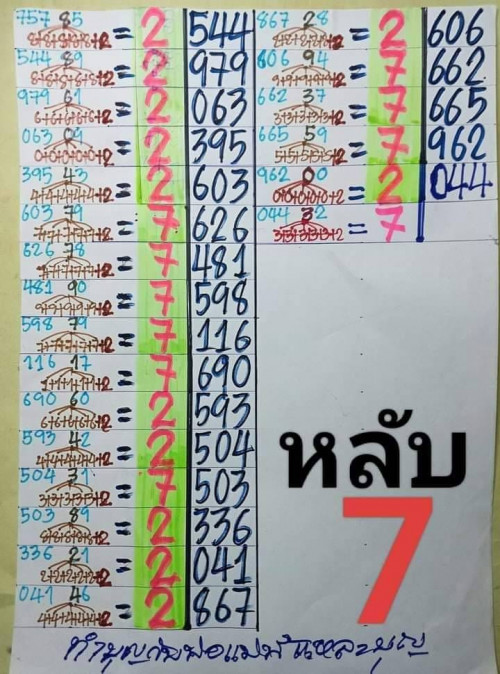 757 85
8+8+8+8+8+2 = 2 544
544 89
8+8+8+8+8+2 = 2 979
979 61
6+6+6+6+6+2 = 2 063
063 09
0+0+0+0+0+2 = 2 395
395 43
4+4+4+4+4+2 = 2 603
603 79
7+7+7+7+7+2 = 7 626
626 78
7+7+7+7+7+2 = 7 481
481 90
9+9+9+9+9+2 = 7 598
598 79
7+7+7+7+7+2 = 7 116
116 17
1+1+1+1+1+2 = 7 690
690 60
6+6+6+6+6+2 = 2 593
593 42
4+4+4+4+4+2 = 2 504
504 31
3+3+3+3+3+2 = 7 503
503 89
8+8+8+8+8+2 = 2 336
336 21
2+2+2+2+2+2 = 2 041
041 46
4+4+4+4+4+2 = 2 867
867 28
2+2+2+2+2+2 = 2 606
606 94
9+9+9+9+9+2 = 7 662
662 37
3+3+3+3+3+2 = 7 665
665 59
5+5+5+5+5+2 = 7 962
962 00
0+0+0+0+0+2 = 2 044
044 32
3+3+3+3+3+2 = 7
หลับ
7
ทำบุญกับพ่อแม่